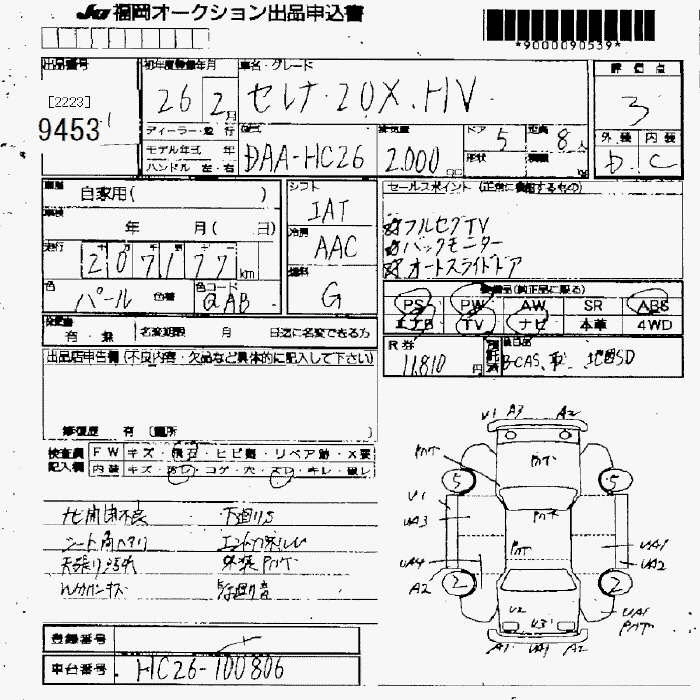 JU 福岡オークション出品申込書
*9000090539*
出品番号
[2223]
9453
初年度登録年月
26 2月
車名・グレード
セレナ・20X.HV
評価点
3
外装 内装
D C
ディーラー・並行
モデル年式 年
ハンドル 左・右
型式
DAA-HC26
排気量
2.000 cc
ドア 5
形状
定員 8人
積載
車歴
自家用( )
車検
年 月( 日)
走行
207177 km
色
パール 色替
色コード
QAB
シフト
IAT
冷房
AAC
燃料
G
セールスポイント (正常に機能するもの)
フルセグTV
バックモニター
オートスライドドア
装備品(純正品に限る)
PS PW AW SR ABS
エアB TV ナビ 本革 4WD
有・無 名変期限 月 日迄に名変できる方
R券
11,810 円
預託済
後日品
B-CAS、取、地図SD
出品店申告欄(不良内容・欠品など具体的に記入して下さい)
修復歴 有 (箇所 )
検査員
記入欄
FW キズ・飛石・ヒビ割・リペア跡・X要
内装 キズ・汚レ・コゲ・穴・スレ・キレ・破レ
ナビ開閉不良 下廻りS
シート角ヘタリ
天張り汚れ 外装PNT
Wカバーキズ
U1 A3 A2
PNT PNT
5 5
U1
UA3
PNT
PNT
UA1
UA2
UA4
A2
2 2
U2
U3
UA1
PNT
A1 UA1 A2
登録番号
車台番号 HC26-100806